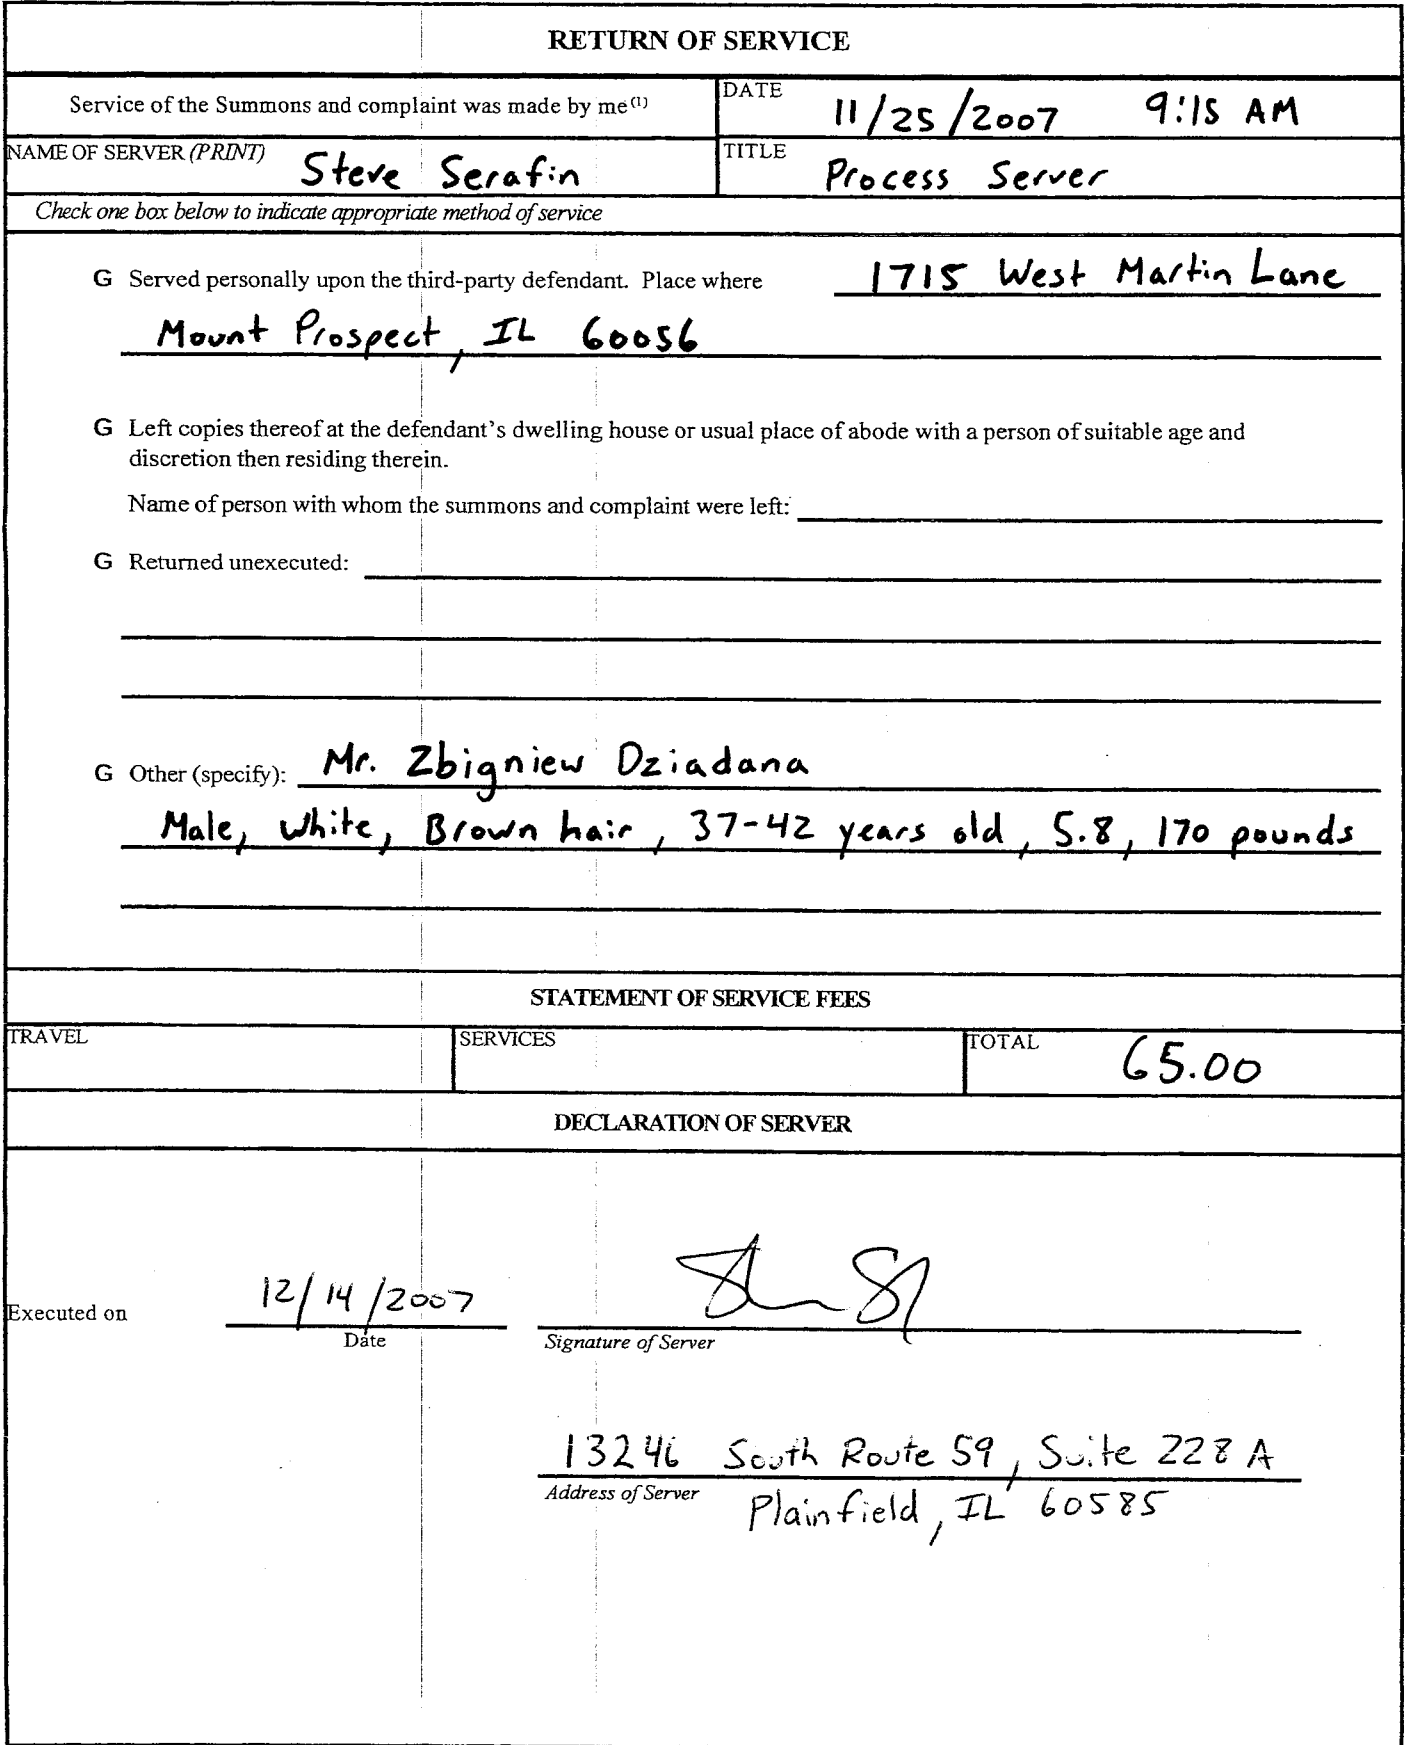 RETURN OF SERVICE
Service of the Summons and complaint was made by me(1)
DATE 11/25/2007 9:15 AM
NAME OF SERVER (PRINT) Steve Serafin
TITLE Process Server
Check one box below to indicate appropriate method of service
G Served personally upon the third-party defendant. Place where 1715 West Martin Lane
Mount Prospect, IL 60056
G Left copies thereof at the defendant's dwelling house or usual place of abode with a person of suitable age and
discretion then residing therein.
Name of person with whom the summons and complaint were left:
G Returned unexecuted:
G Other (specify): Mr. Zbigniew Dziadana
Male, White, Brown hair, 37-42 years old, 5.8, 170 pounds
STATEMENT OF SERVICE FEES
TRAVEL SERVICES TOTAL 65.00
DECLARATION OF SERVER
Executed on 12/14/2007
Date Signature of Server
13246 South Route 59, Suite 228 A
Address of Server Plainfield, IL 60585